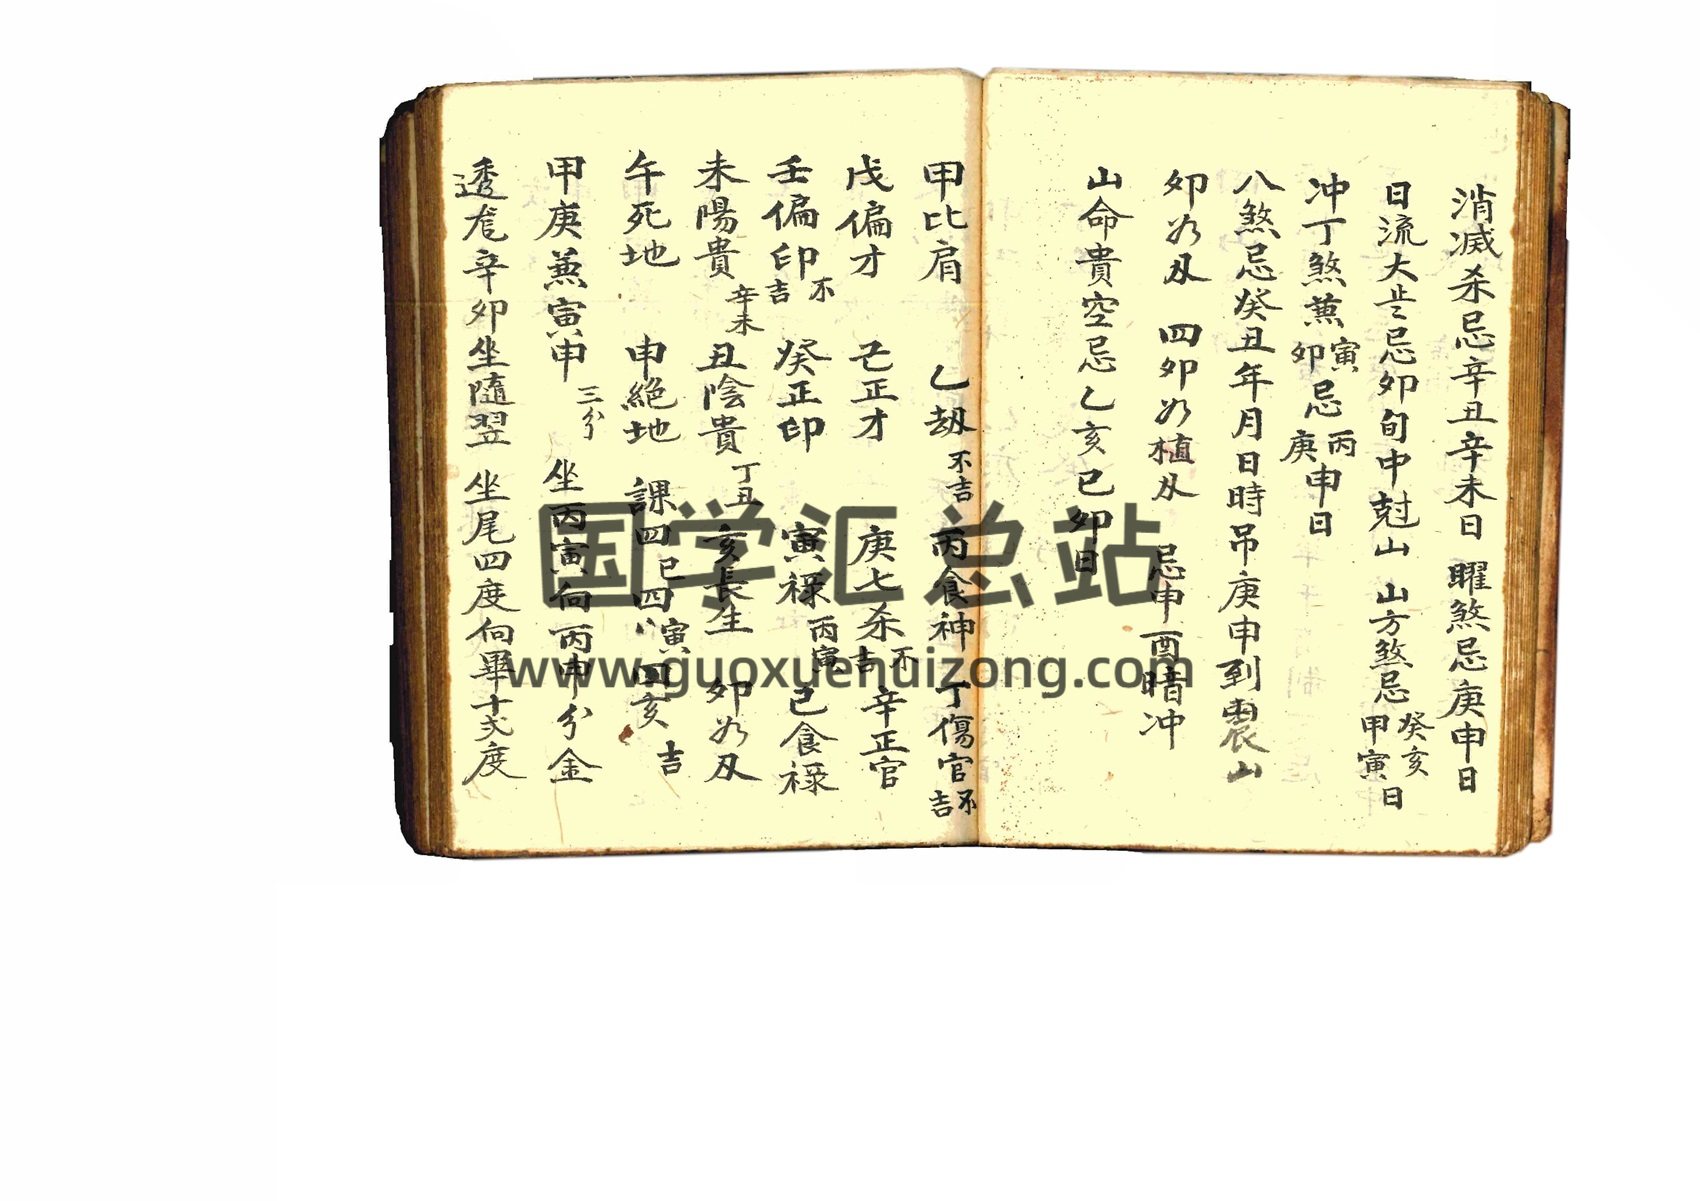 消滅杀忌辛丑辛未日 曜煞忌庚申日
日流大㞢忌卯旬中尅山 山方煞忌癸亥甲寅日
冲丁煞蕉寅卯忌丙庚申日
八煞忌癸丑年月日時吊庚申到震山
卯为刃 四卯为植刃 忌申酉暗冲
山命貴空忌乙亥己卯日
甲比肩 乙劫不吉 丙食神 丁傷官不吉
戊偏才 己正才 庚七杀不吉 辛正官
壬偏印不吉 癸正印 寅禄丙寅 巳食禄
未陽貴辛未 丑陰貴丁丑 亥長生 卯为刃
午死地 申絕地 課四巳四寅四亥吉
甲庚蕉寅申三分 坐丙寅向丙申分金
透尨辛卯坐隨翌 坐尾四度向畢十弍度
国学汇总站
www.guoxuehuizong.com